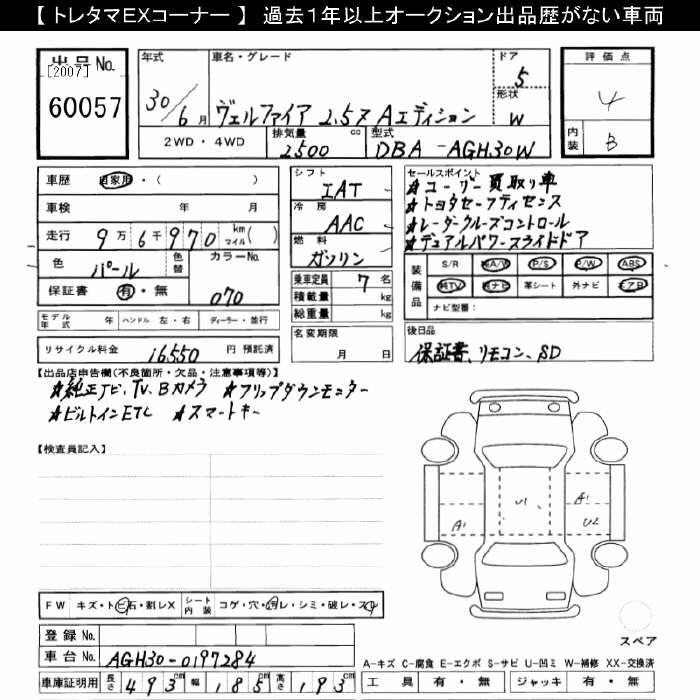 【 トレタマEXコーナー 】 過去1年以上オークション出品歴がない車両
出品 No.
[2007]
60057
年式
30/6月
車名・グレード
ヴェルファイア 2.5Z Aエディション
ドア
5
形状
W
2WD・4WD
排気量 cc
2500
型式
DBA-AGH30W
評価点
4
内装
B
車歴 自家用・( )
車検 年 月
走行 9万6千970 km マイル( )
色 パール 色替 カラーNo.
保証書 有・無 070
モデル年式 年 ハンドル 左・右 ディーラー・並行
リサイクル料金 16,550 円 預託済
シフト
IAT
冷房
AAC
燃料
ガソリン
乗車定員 7 名
積載量 kg
総重量 kg
名変期限
月 日
セールスポイント
★ユーザー買取り車
★トヨタセーフティセンス
★レーダークルーズコントロール
★デュアルパワースライドドア
装備品
S/R 純A/W P/S P/W ABS
純TV 純ナビ 革シート 外ナビ エアB
ナビ型番:
後日品
保証書、リモコン、SD
【出品店申告欄(不良箇所・欠品・注意事項等)】
★純正ナビ、TV、Bカメラ ★フリップダウンモニター
★ビルトインETC ★スマートキー
【検査員記入】
A1
U1
A1
U2
スペア
FW キズ・トビ石・割レX シート内装 コゲ・穴・汚レ・シミ・破レ・スレ
登録 No.
車台 No. AGH30-0197284
車庫証明用 長さ 493cm 幅 185cm 高さ 193cm
A-キズ C-腐食 E-エクボ S-サビ U-凹ミ W-補修 XX-交換済
工具 有・無 ジャッキ 有・無